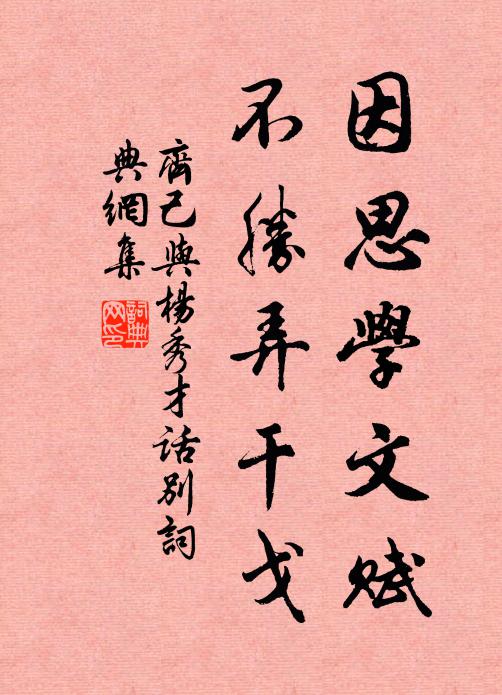 因思學文賦
不勝弄干戈
齊己與楊秀才话别詞
典網集
詞典
网印